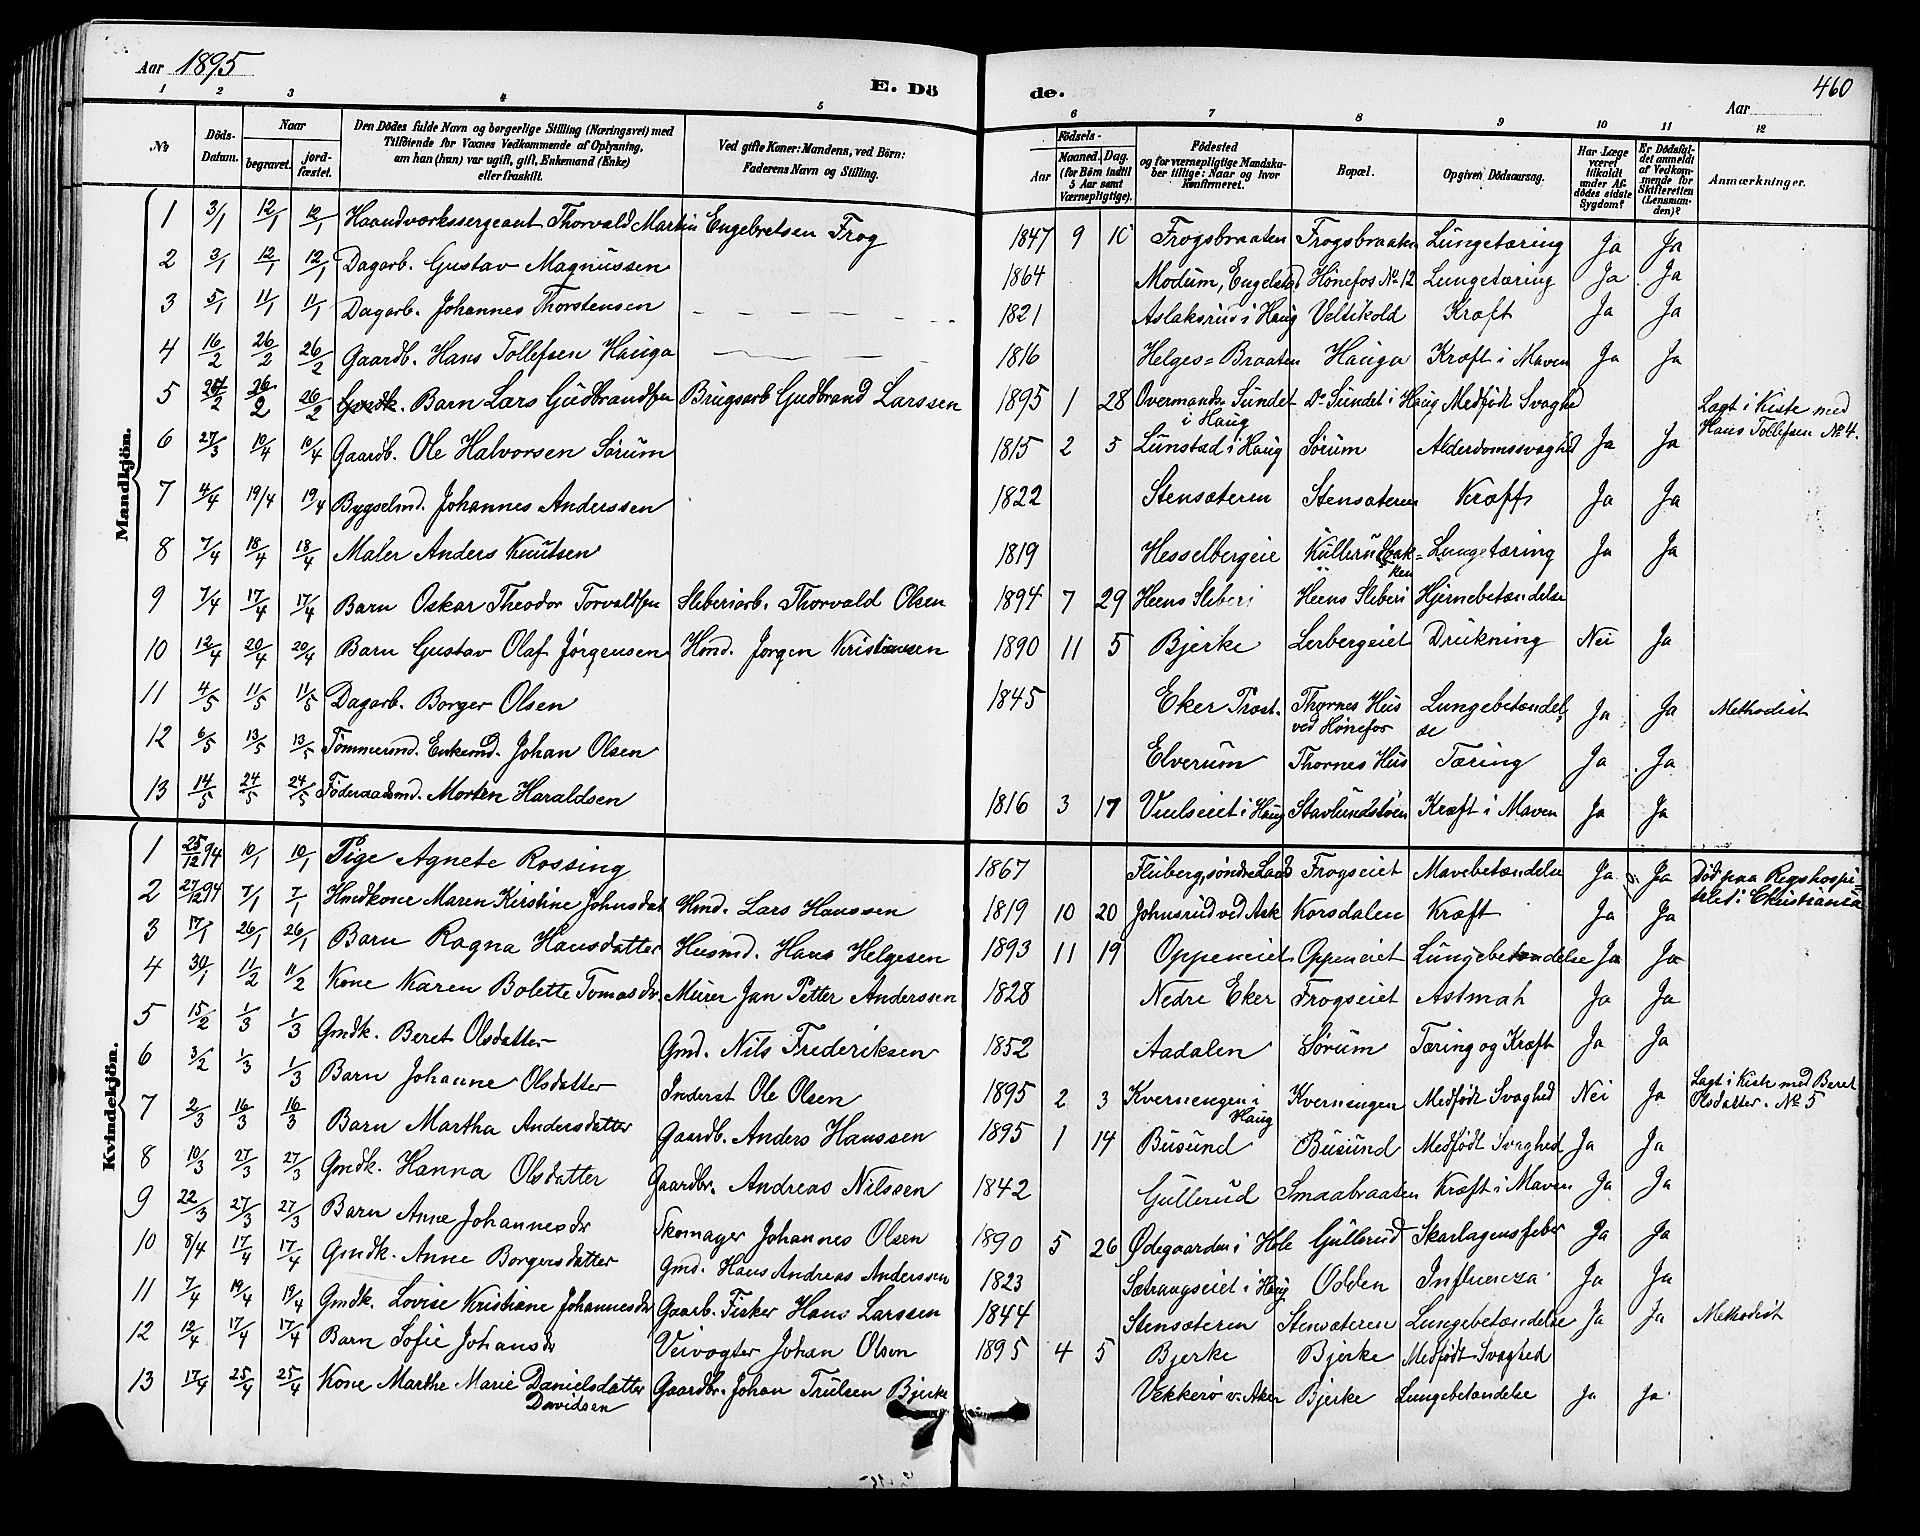 Aar 1895
E. Dö de.
460
Aar
1 2 3 4 5 6 7 8 9 10 11 12
No
Döds-Datum.
Naar
begravet.
jord-fæstet.
Den Dödes fulde Navn og borgerlige Stilling (Næringsvei) med
Tilföiende for Voxnes Vedkommende af Oplysning,
om han (hun) var ugift, gift, Enkemand (Enke)
eller fraskilt.
Ved gifte Koner: Mandens, ved Börn:
Faderens Navn og Stilling.
Födsels-
Aar
Maaned. Dag.
(for Börn indtil
5 Aar samt
Værnepligtige).
Födested
og for værnepligtige Mandska-
ber tillige: Naar og hvor
konfirmeret.
Bopæl.
Opgiven Dödsaarsag.
Har Læge
været
tilkaldt
under Af-
dödes sidste
Sygdom?
Er Dödsfal-
det anmeldt
af Vedkom-
mende for
Skifteretten
(Lensman-
den)?
Anmærkninger.
Mandkjön.
1 3/1 12/1 12/1 Haandværkssergeant Thorvald Martin Engebretsen Frog 1847 9 Frogsbraaten Frogsbraaten Lungetæring Ja Ja
2 3/1 12/1 12/1 Dagarb. Gustav Magnussen 1864 Modum, Hønefos No 12 Lungetæring Ja Ja
3 5/1 11/1 11/1 Dagarb. Johannes Thorstensen 1821 Aslaksrud i Haug Veltikold Kræft Ja Ja
4 16/2 26/2 26/2 Gaardb. Hans Tollefsen Hauga 1816 Helges=Braaten Hauga Kræft i Maven Ja Ja
5 26/2 26/2 Barn Lars Gudbrandsen Brugsarb Gudbrand Larssen 1895 1 28 Overmands. Sundet i Haug Do Sundet i Haug Medfødt Svaghed Lagt i Kiste med Hans Tollefsen No 4.
6 27/3 10/4 10/4 Gaardb. Ole Halvorsen Sørum 1815 2 5 Lunstad i Haug Sørum Alderdomssvaghed Ja Ja
7 4/4 19/4 19/4 Bygselmd. Johannes Anderssen 1822 Stensæteren Stensæteren Kræft Ja Ja
8 7/4 18/4 18/4 Maler Anders Knutsen 1819 Hesselbergeie Kullerud Bakken Lungetæring Ja Ja
9 7/4 17/4 17/4 Barn Oskar Theodor Torvaldsen Sliberiarb. Thorvald Olsen 1894 7 29 Heens Sliberi Heens Sliberi Hjernebetændelse
10 12/4 20/4 20/4 Barn Gustav Olaf Jørgensen Hmd. Jørgen Kristiansen 1890 11 5 Bjerke Lerbergeiet Drukning Nei Ja
11 4/5 11/5 11/5 Dagarb. Borger Olsen 1845 Eker Præst. Thornes Hus ved Hønefos Lungebetændelse Ja Ja Methodist
12 6/5 13/5 13/5 Tømmermd. Enkemd. Johan Olsen Elverum Thornes Hus Tæring Ja Ja
13 14/5 24/5 24/5 Føderaadsmd. Morten Haraldsen 1816 3 17 Viulseiet i Haug Stavlundstøen Kræft i Maven Ja Ja
Kvindekjön.
1 25/12 94 10/1 10/1 Pige Agnete Rossing 1867 Fluberg, søndre Land Frogseiet Mavebetændelse Ja Ja Død paa Rigshospitalet i Christiania
2 27/12 94 7/1 7/1 Hmdkone Maren Kirstine Johnsdat Hmd. Lars Hanssen 1819 10 20 Johnsrud ved Ask Korsdalen Kræft Ja Ja
3 17/1 26/1 26/1 Barn Ragna Hansdatter Husmd. Hans Helgesen 1893 11 19 Oppeneiet Oppeneiet Lungebetændelse Ja Ja
4 30/1 11/2 11/2 Kone Karen Bolette Tomasdr. Murer Jan Petter Anderssen 1828 Nedre Eker Frogseiet Astmah Ja Ja
5 15/2 1/3 1/3 Gmdk. Beret Olsdatter Gmd. Nils Frederiksen 1852 Aadalen Sørum Tæring og Kræft Ja Ja
6 3/2 1/3 1/3 Barn Johanne Olsdatter Inderst Ole Olsen 1895 2 3 Kvernengen i Haug Kvernengen Medfødt Svaghed Nei Ja Lagt i Kiste med Beret Olsdatter. No 5
7 2/3 16/3 16/3 Barn Martha Andersdatter Gaardb. Anders Hanssen 1895 1 14 Busund Busund Medfødt Svaghed Ja Ja
8 10/3 27/3 27/3 Gmdk. Hanna Olsdatter Gaardbr. Andreas Nilssen 1842 Gullerud Smaabraaten Kræft i Maven Ja Ja
9 22/3 27/3 27/3 Barn Anne Johannesdr Skomager Johannes Olsen 1890 5 26 Ødegaarden i Hole Gullerud Skarlagensfeber Ja Ja
10 8/4 17/4 17/4 Gmdk. Anne Borgersdatter Gmd. Hans Andreas Anderssen 1823 Sætrangseiet i Haug Odden Influenza Ja Ja
11 7/4 19/4 19/4 Gmdk. Lovise Kristiane Johannesdr Gaarb. Fisker Hans Larssen 1844 Stensæteren Stensæteren Lungebetændelse Ja Ja Methodist
12 12/4 17/4 17/4 Barn Sofie Johansdr Veivogter Johan Olsen 1895 4 5 Bjerke Bjerke Medfødt Svaghed
13 17/4 25/4 25/4 Kone Marthe Marie Danielsdatter Davidsen Gaardbr. Johan Trulsen Bjerke Vekkerø v. Aker Bjerke Lungebetændelse Ja Ja